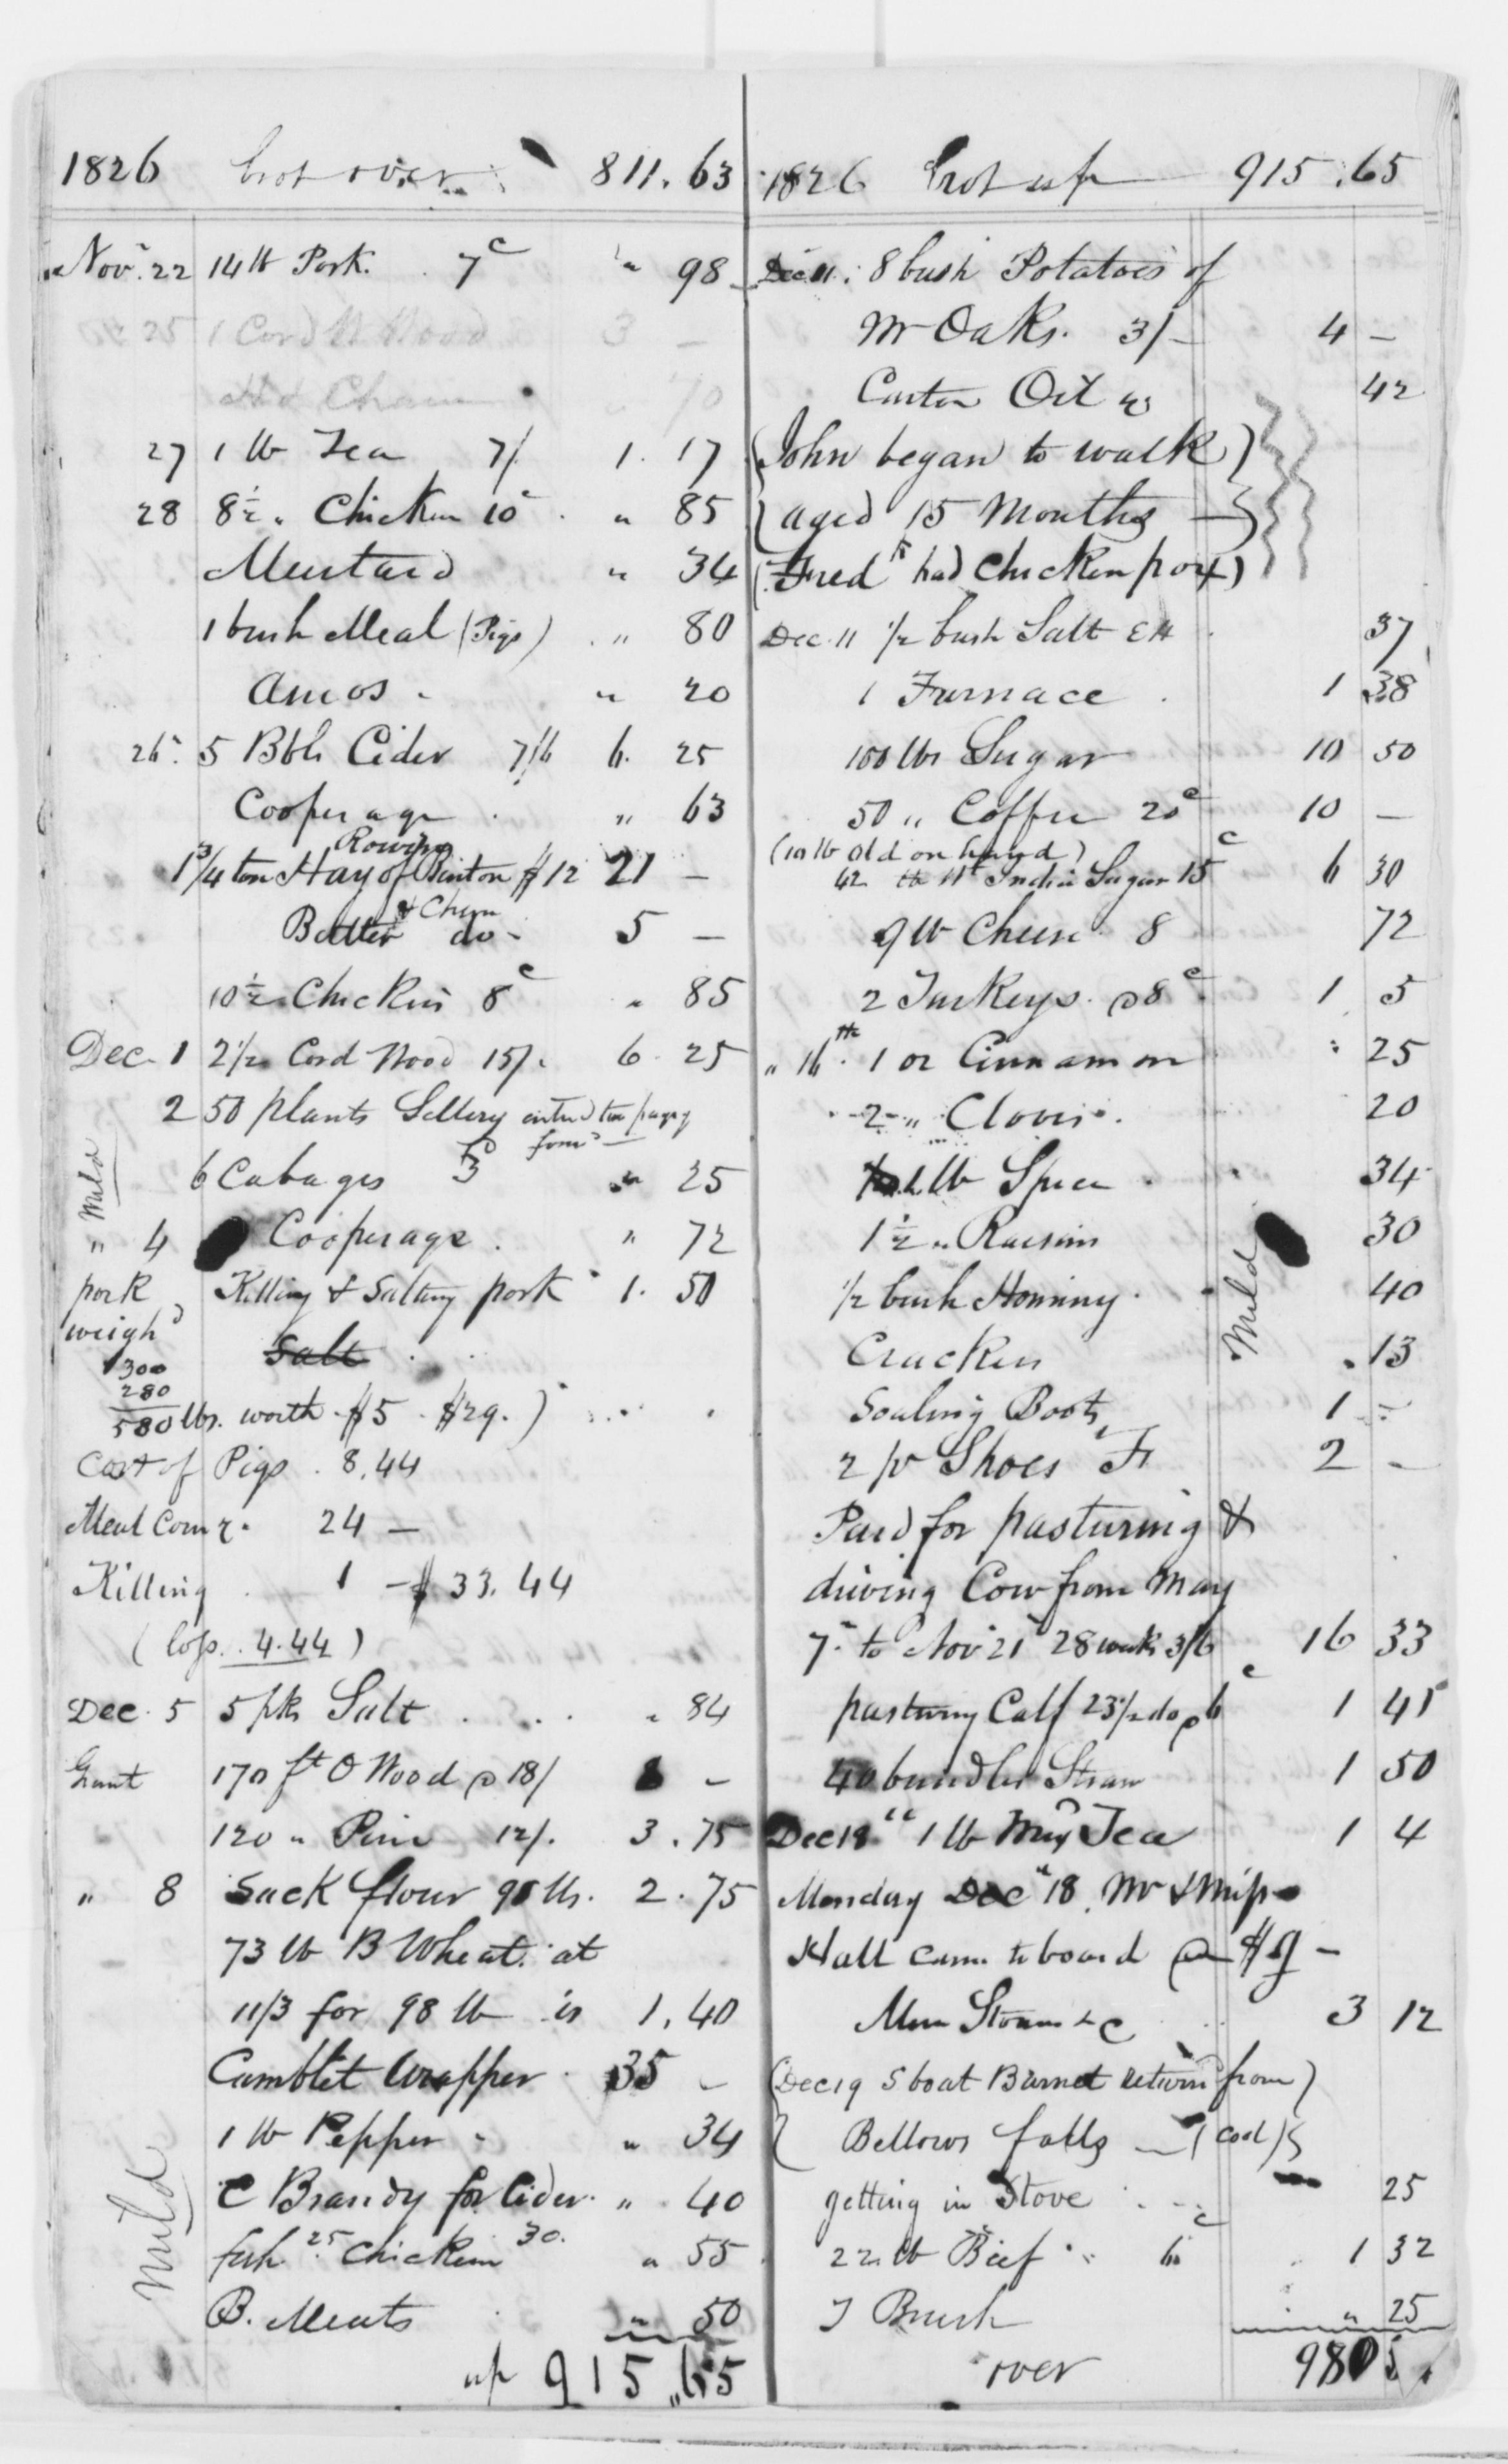 1826 brot over 811.63
Nov. 22 14 lb Pork. 7c " 98
25 1 Cord W Wood 3 —
70
27 1 lb Tea 7/ 1. 17
28 8½ " Chicken 10c " 85
Mustard " 34
1 bush Meal (Pigs) " 80
Amos " 20
26. 5 Bbls Cider 7/6 6. 25
Cooperage " 63
Rowing
1 3/4 ton Hay of Barton $12 21 —
& Chem
Butter do 5 —
10½ Chickens 8c " 85
Dec. 1 2½ Cord Wood 15/. 6. 25
2 50 plants Sellery entd two pages
forwd —
6 Cabages " 25
Mild
" 4 Cooperage " 72
pork Killing & Salting pork 1. 50
weighd Salt
300
280
580 lbs. worth $5 $29.)
Cost of Pigs 8.44
Meal Corn &. 24 —
Killing 1 — $ 33.44
(loss. 4.44)
Dec. 5 5 pks Salt " 84
Grant 170 ft O Wood @ 18/ 8 —
120 " Pine 12/. 3. 75
" 8 Sack flour 98 lbs. 2. 75
73 lb B Wheat at
11/3 for 98 lb is 1. 40
Camblet Wrapper 35 —
1 lb Pepper " 34
C Brandy for Cider " 40
Mild
fish 25 Chicken 30. " 55
B. Meats " 50
up 915.65
1826 brot up 915.65
Dec 11. 8 bush Potatoes of
Mr Oaks. 3/— 4 —
Castor Oil & 42
(John began to walk)
(aged 15 Months —)
(Fred k had Chicken pox)
Dec. 11 ½ bush Salt EH 37
1 Furnace 1 38
100 lbs Sugar 10 50
50 " Coffee 20c 10 —
(10 lb old on hand)
42 lb Wt India Sugar 15c 6 30
9 lb Cheese 8 72
2 Turkeys @ 8c 1 5
" 16th. 1 oz Cinnamon " 25
2 " Cloves. 20
1 lb Spice 34
1½ " Raisins 30
½ bush Hominy 40
Mild
Crackers 13
Soaling Boots 1 —
2 pr Shoes F 2 —
Paid for pasturing &
driving Cow from May
7 to Nov 21 28 weeks 3/6 16 33
pasturing Calf 23½ do @ 6c 1 41
40 bundles Straw 1 50
Dec 18 " 1 lb Tea 1 4
Monday Dec 18. Mr & Miss
Hall came to board @ $9 —
&c 3 12
(Dec 19 S boat Barnet returnd from)
Bellows falls — (cool)
getting in Stove 25
22 lb Beef 6c 1 32
Brush " 25
over 980 5